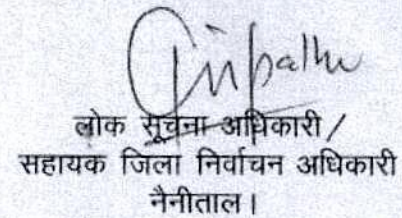 लोक सूचना अधिकारी /
सहायक जिला निर्वाचन अधिकारी
नैनीताल।